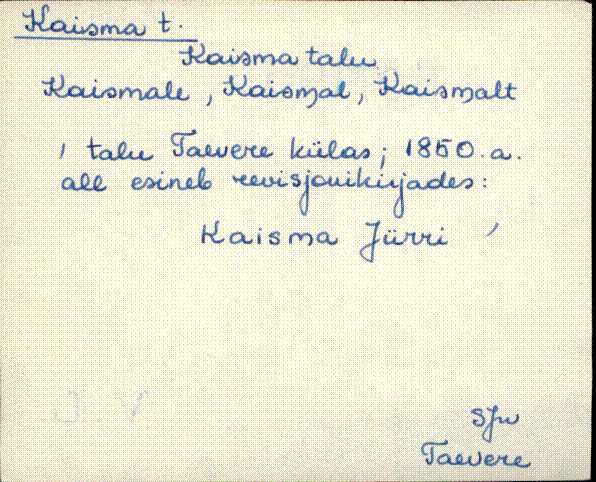 Kaisma t.
Kaisma talu
Kaismale, Kaismal, Kaismalt
, talu Taevere külas; 1850.a.
all esineb revisjonikirjades:
Kaisma Jürri ,
SJn
Taevere